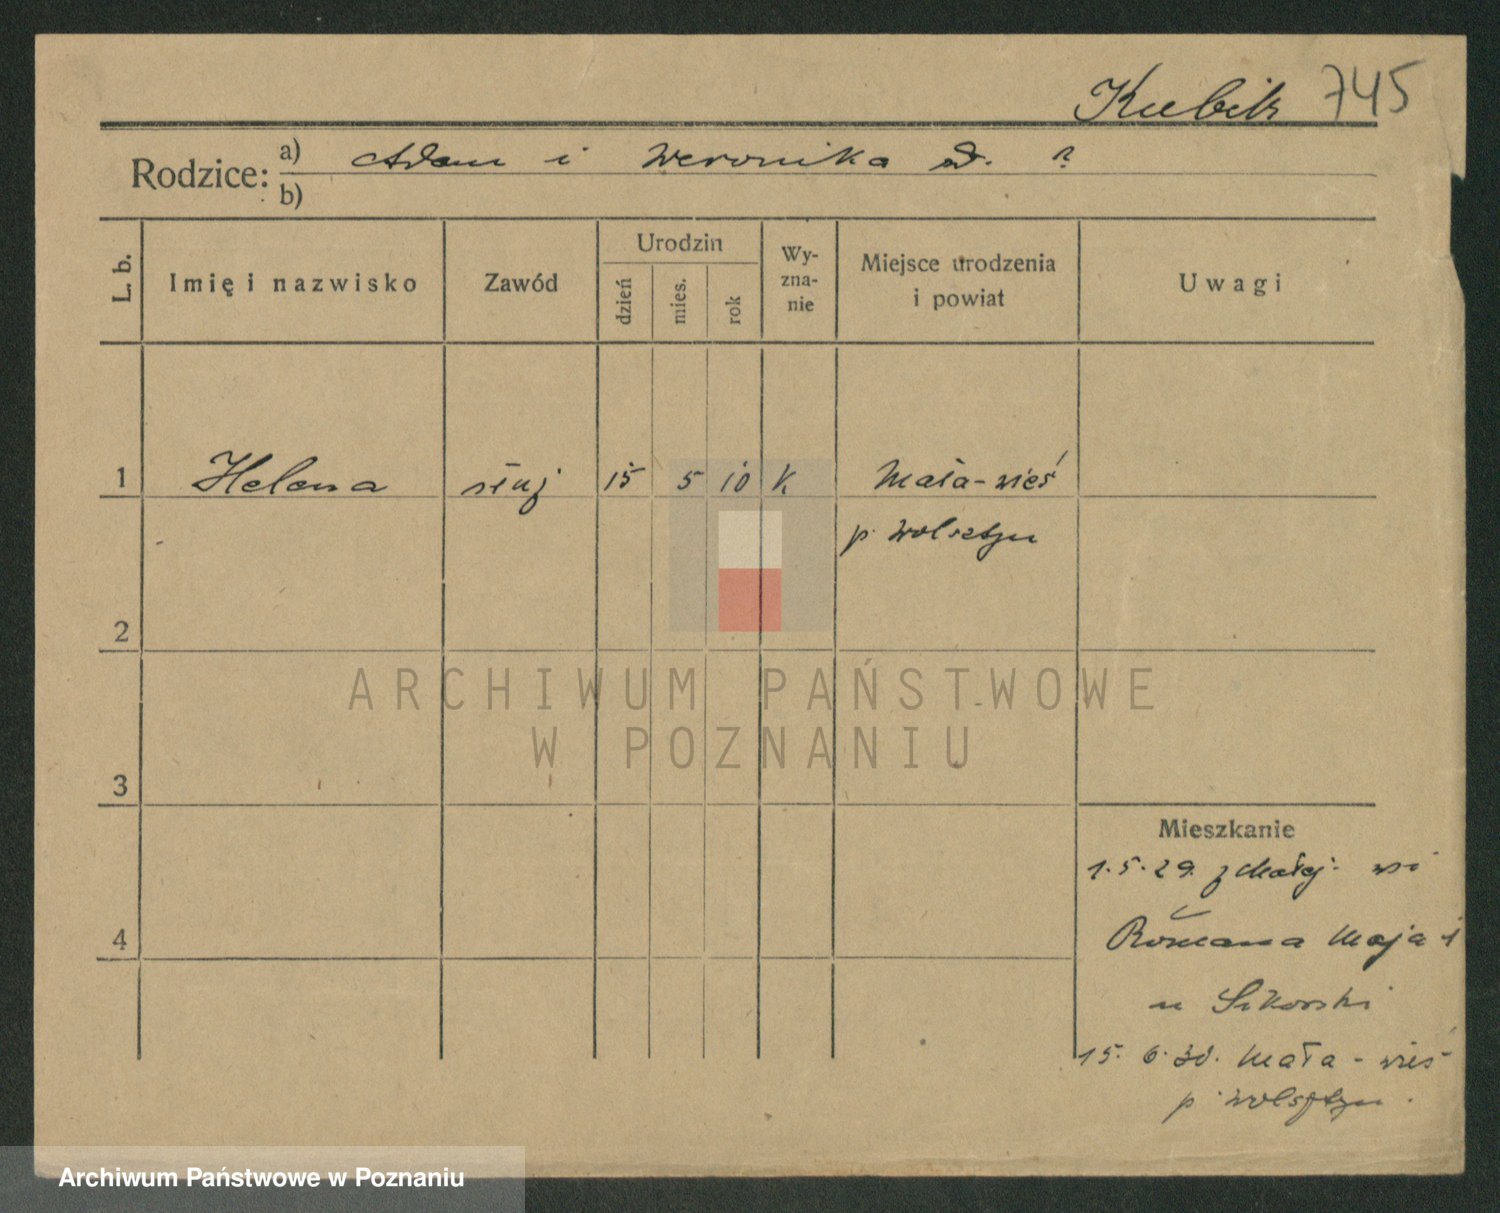 Kubik 745
Rodzice: a) Adam i Weronika d. ?
b)
L. b. Imię i nazwisko Zawód Urodzin dzień mies. rok Wy-zna-nie Miejsce urodzenia i powiat Uwagi
1 Helena służ 15 5 10 k. Mała-wieś
p. Wolsztyn
2
3
4
Mieszkanie
1.5.29. z Małej-wsi
Romana Maja 1
u Sikorski
15.6.30. Mała-wieś
p. Wolsztyn.
ARCHIWUM PAŃSTWOWE
W POZNANIU
Archiwum Państwowe w Poznaniu